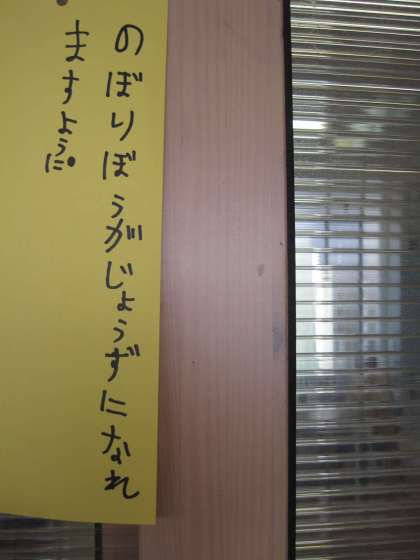 のぼりぼうがじょうずになれ
ますように。